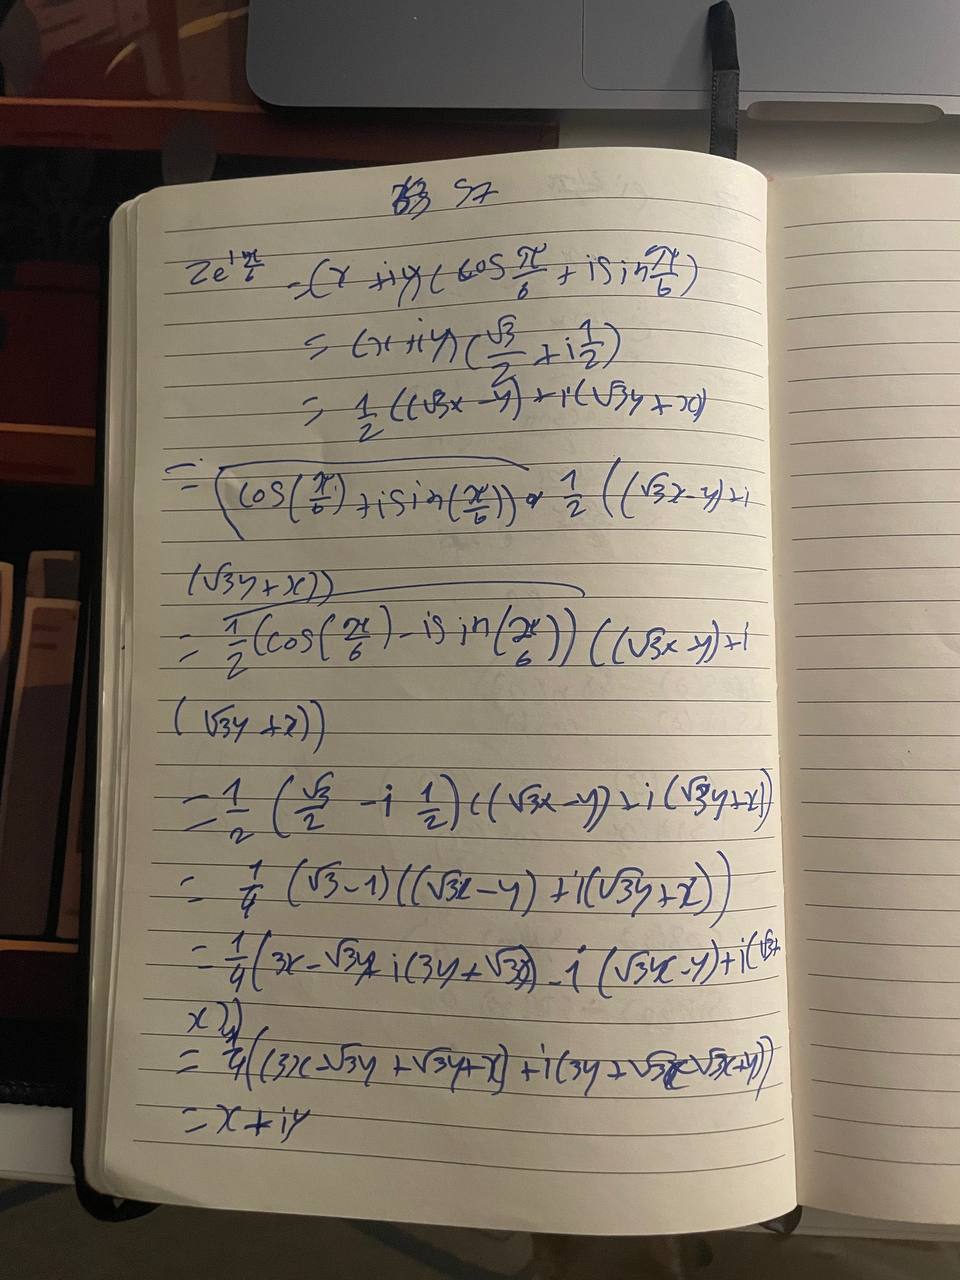 57
ze^{iπ/6} = (x + iy)(cos π/6 + i sin π/6)
= (x + iy)(√3/2 + i 1/2)
= 1/2 ((√3x - y) + i(√3y + x)
= (cos(π/6) + i sin(π/6)) 1/2 ((√3x - y) + i
(√3y + x))
= 1/2 (cos(π/6) - i sin(π/6)) ((√3x - y) + i
(√3y + x))
= 1/2 (√3/2 - i 1/2)((√3x - y) + i(√3y + x))
= 1/4 (√3 - 1)((√3x - y) + i(√3y + x))
= 1/4 (3x - √3y + i(3y + √3x) - i(√3x - y) + i(√3
x))
= 1/4((3x - √3y + √3y + x) + i(3y + √3x - √3x + y))
= x + iy